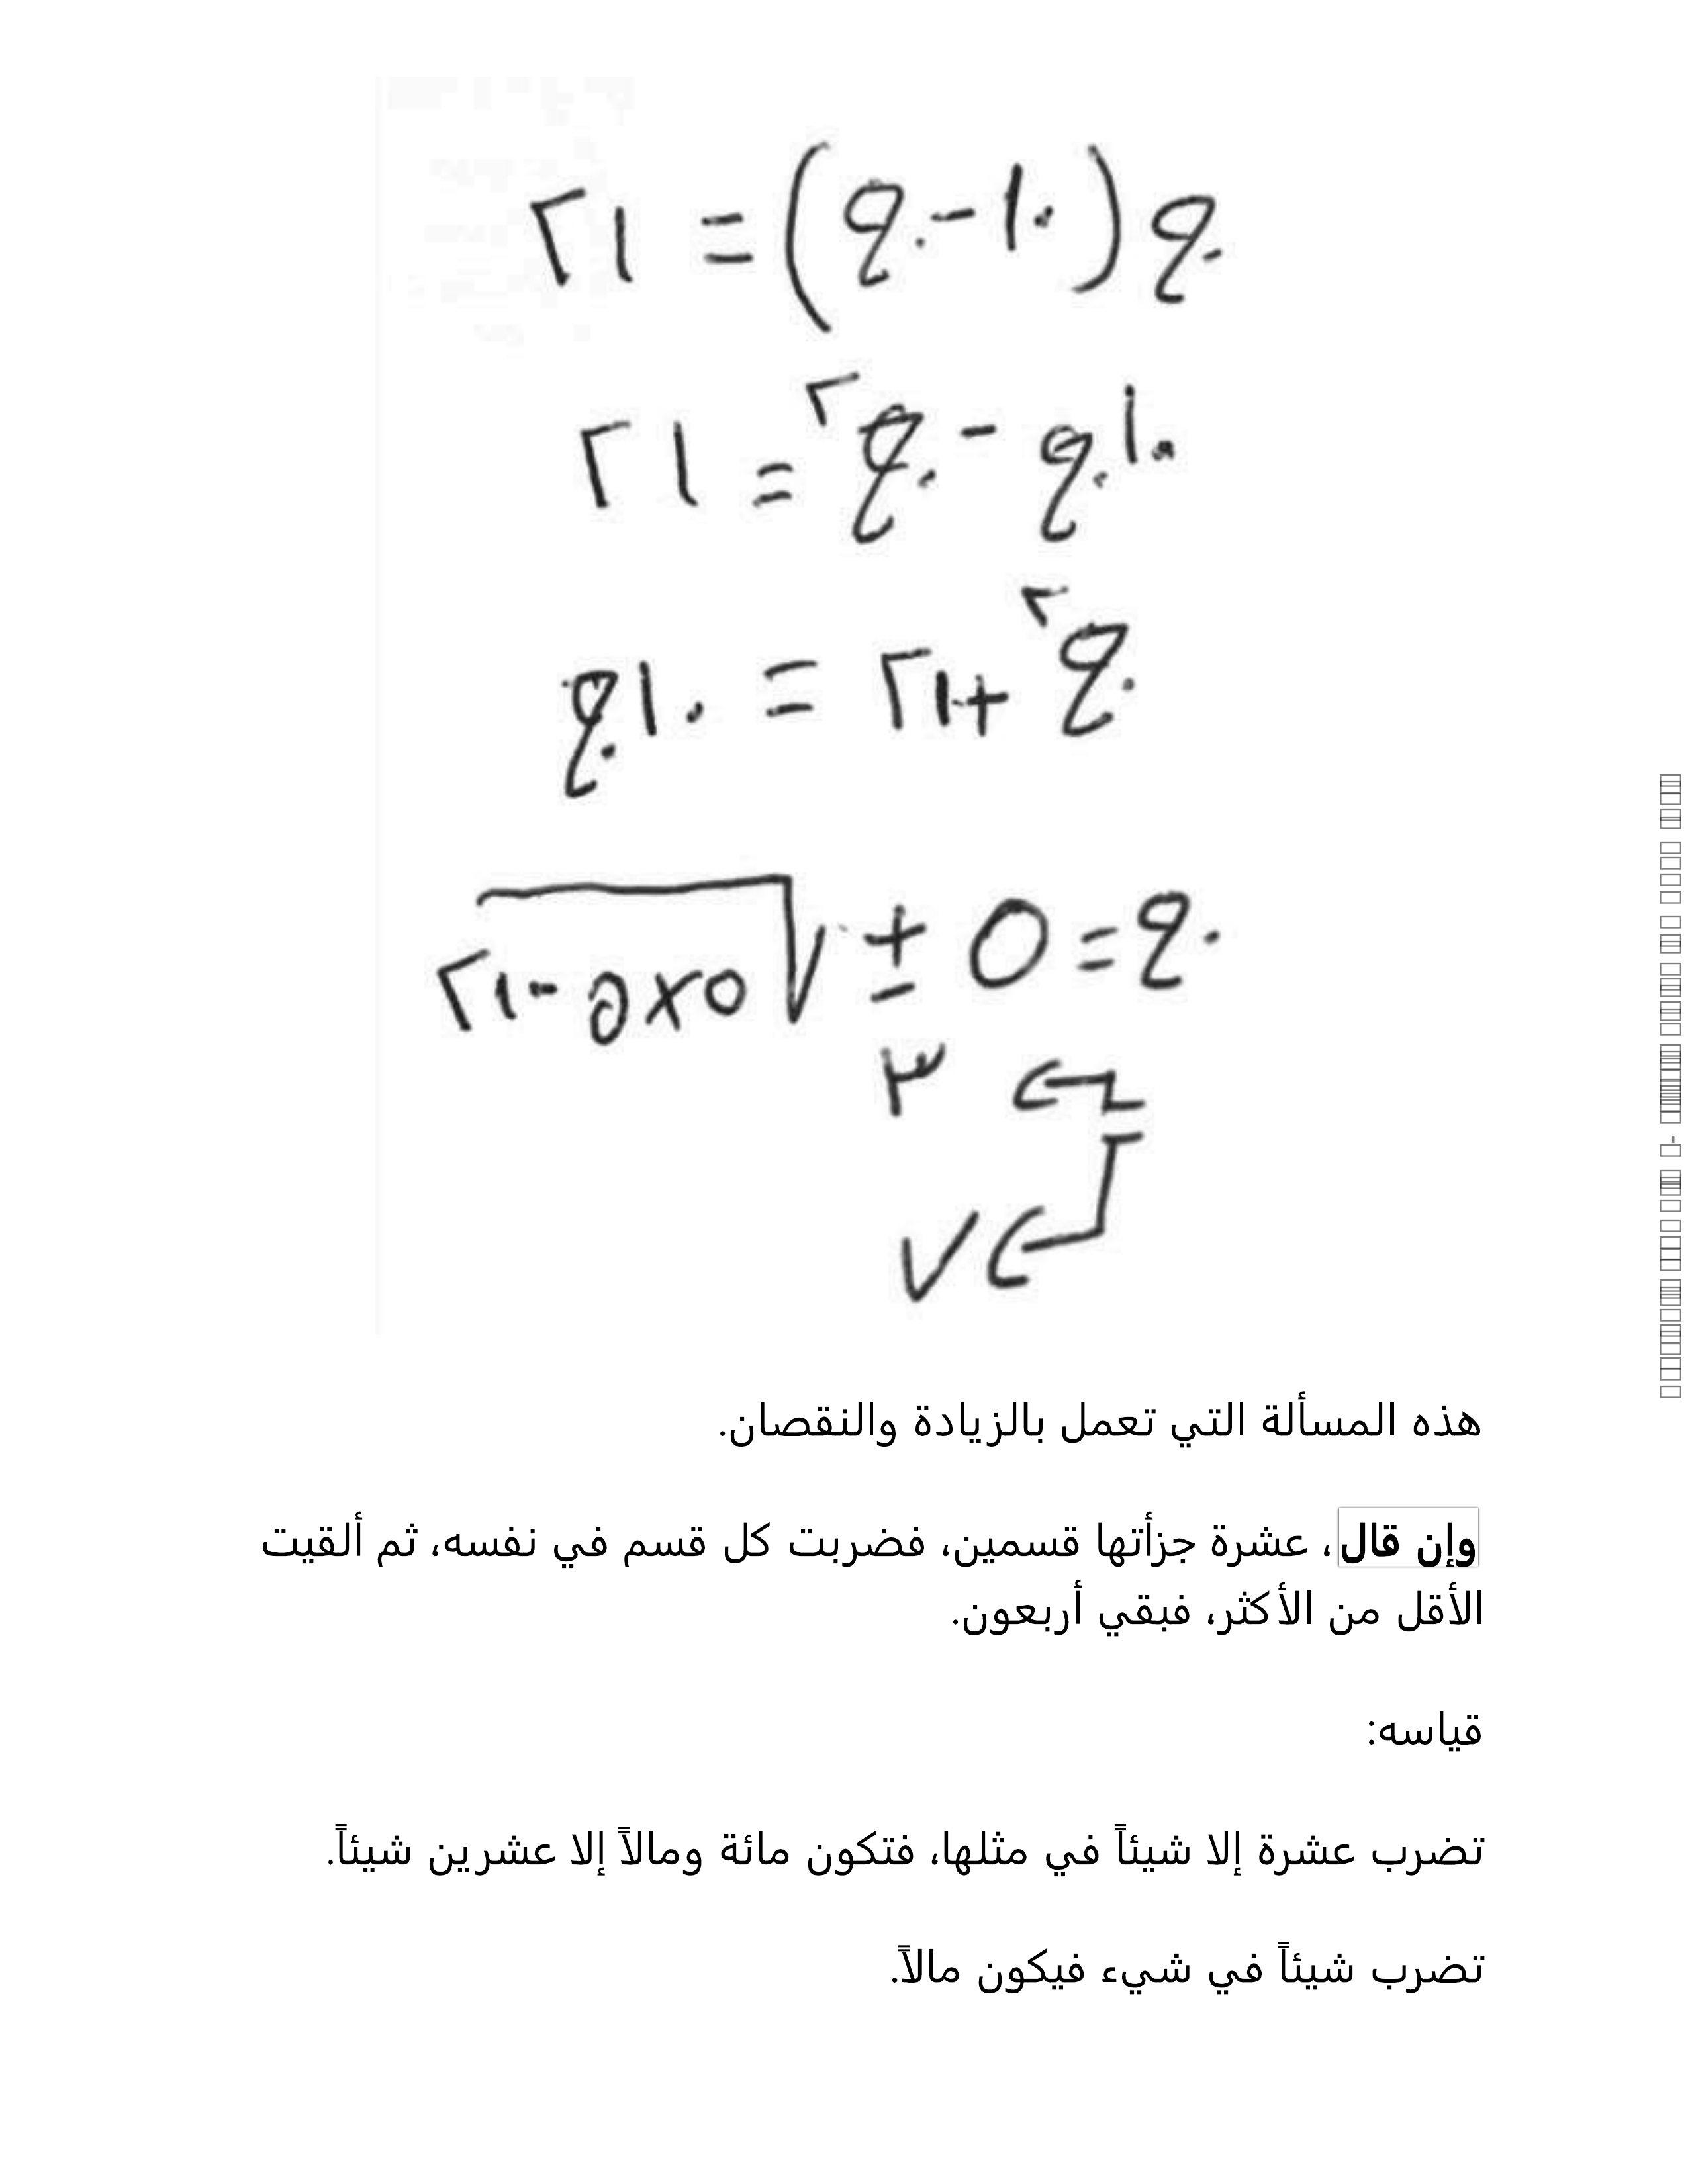 ج(١٠ - ج) = ٢١
١٠ج - ج٢ = ٢١
ج٢ + ٢١ = ١٠ج
ج = ٥ ± √٥×٥-٢١
٣
٧
هذه المسألة التي تعمل بالزيادة والنقصان.
وإن قال، عشرة جزأتها قسمين، فضربت كل قسم في نفسه، ثم ألقيت
الأقل من الأكثر، فبقي أربعون.
قياسه:
تضرب عشرة إلا شيئاً في مثلها، فتكون مائة ومالاً إلا عشرين شيئاً.
تضرب شيئاً في شيء فيكون مالاً.